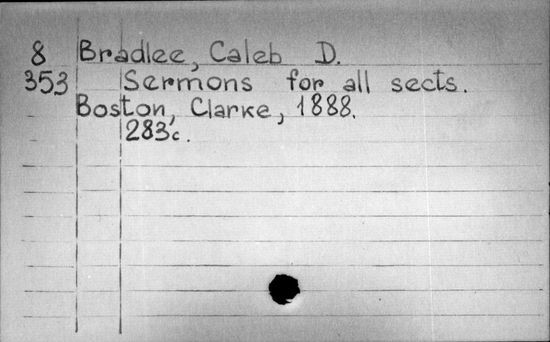 8 Bradlee, Caleb D.
353 Sermons for all sects.
Boston, Clarke, 1888.
283c.